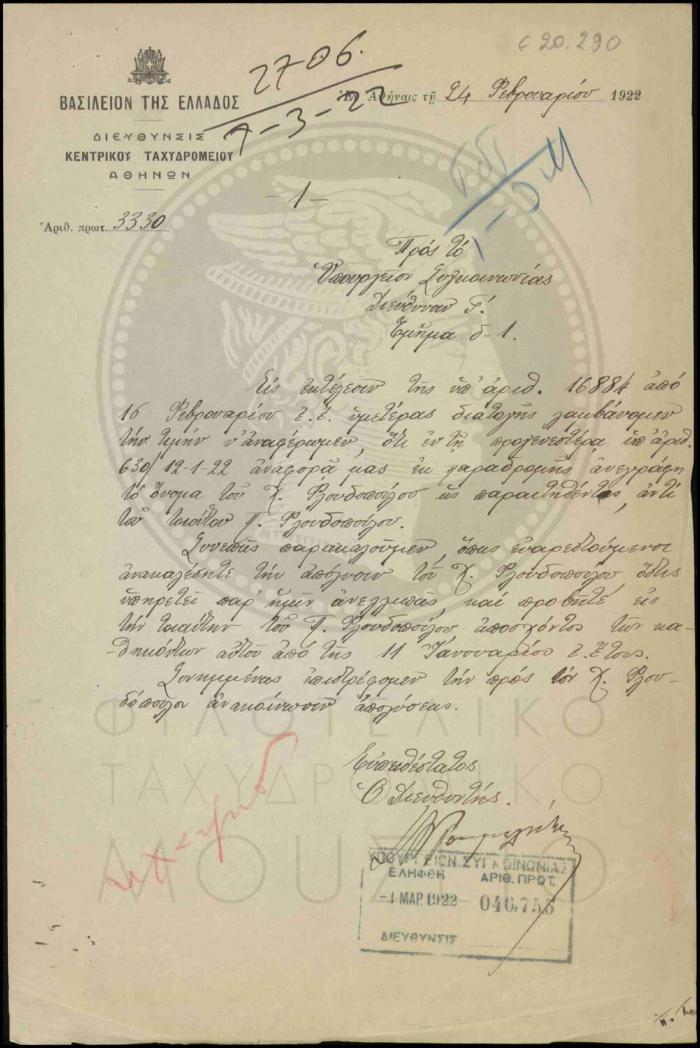 € 20.290
2706.
7-3-22
ΒΑΣΙΛΕΙΟΝ ΤΗΣ ΕΛΛΑΔΟΣ
Ἐν Ἀθήναις τῇ 24 Φεβρουαρίου 1922
ΔΙΕΥΘΥΝΣΙΣ
ΚΕΝΤΡΙΚΟΥ ΤΑΧΥΔΡΟΜΕΙΟΥ
ΑΘΗΝΩΝ
-1-
Ἀριθ. πρωτ. 3330
Πρός τό
Ὑπουργεῖον Συγκοινωνίας
Διεύθυνσιν Γ΄.
Τμῆμα δ-1.
Εἰς ἐκτέλεσιν τῆς ὑπ' ἀριθ. 16884 ἀπό
16 Φεβρουαρίου ἐ.ἔ. ἡμετέρας διαταγῆς λαμβάνομεν
τήν τιμήν ν' ἀναφέρωμεν, ὅτι ἐν τῇ προγενεστέρᾳ ὑπ' ἀριθ.
630/12-1-22 ἀναφορᾷ μας ἐκ παραδρομῆς ἀνεγράφη
τό ὄνομα τοῦ Χ. Φλουδοπούλου ὡς παραιτηθέντος, ἀντί
τοῦ τοιούτου Π. Φλουδοπούλου.
Συνεπῶς παρακαλοῦμεν, ὅπως εὐαρεστούμενοι
ἀνακαλέσητε τήν ἀπόλυσιν τοῦ Χ. Φλουδοπούλου, ὅστις
ὑπηρετεῖ παρ' ἡμῖν ἀνελλιπῶς, καί προβῆτε εἰς
τήν τοιαύτην τοῦ Π. Φλουδοπούλου ἀποσχόντος τῶν κα-
θηκόντων αὐτοῦ ἀπό τῆς 11 Ἰανουαρίου ἐ. ἔτους.
Συνημμένως ἐπιστρέφομεν τήν πρός τόν Χ. Φλου-
δόπουλον ἀνακοίνωσιν ἀπολύσεως.
Εὐπειθέστατος
Ὁ Διευθυντής.
ΥΠΟΥΡΓΕΙΟΝ ΣΥΓΚΟΙΝΩΝΙΑΣ
ΕΛΗΦΘΗ ΑΡΙΘ. ΠΡΩΤ.
-1 ΜΑΡ. 1922 046.755
ΔΙΕΥΘΥΝΣΙΣ
ΦΙΛΟΤΕΛΙΚΟ
ΤΑΧΥΔΡΟΜΙΚΟ
ΜΟΥΣΕΙΟ